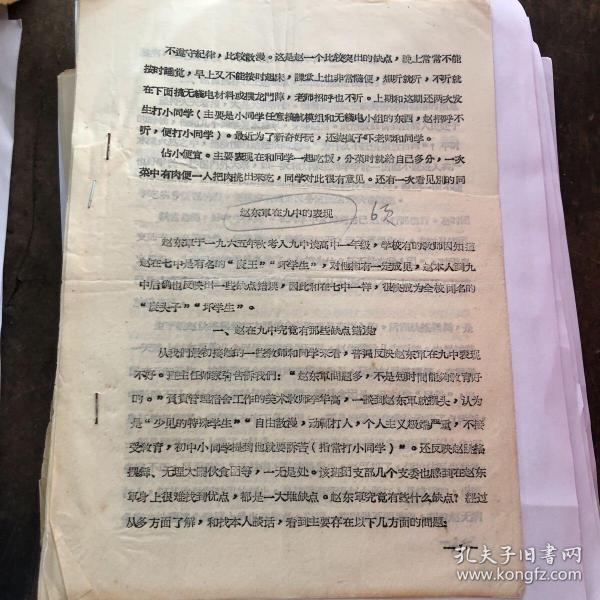 不遵守纪律，比较散漫。这是赵一个比较突出的缺点，晚上常常不能
按时睡觉，早上又不能按时起床，课堂上也非常随便，想听就听，不听就
在下面搞无线电材料或摆龙门阵，老师招呼也不听。上期和这期还两次发
生打小同学（主要是小同学任意搞航模组和无线电小组的东西，赵招呼不
听，便打小同学）。最近为了新奇好玩，还烧疯子下老师和同学。
佔小便宜。主要表现在和同学一起吃饭，分菜时就给自己多分，一次
菜中有肉便一人把肉挑出来吃，同学对此很有意见。还有一次看见别的同
赵东军在九中的表现
6页
赵东军于一九六五年秋考入九中读高中一年级，学校有的教师因知道
赵在七中是有名的“费王”“坏学生”，对他抱有一定成见，赵本人到九
中后确也反映出一些缺点错误，因此和在七中一样，很快成为全校闻名的
“费头子”“坏学生”。
一、赵在九中究竟有那些缺点错误？
从我们最初接触的一些教师和同学来看，普遍反映赵东军在九中表现
不好。班主任师敏告诉我们：“赵东军问题多，不是短时间能夠教育好
的。”负责管理宿舍工作的美术教师李华高，一谈到赵东军就摇头，认为
是“少见的特殊学生”“自由散漫，动辄打人，个人主义极端严重，不接
受教育，初中小同学提到他就要诉苦（指常打小同学）”。还反映赵
、无理大闹伙食团等，一无是处。该班团支部几个支委也感到在赵东
军身上很难找到优点，都是一大堆缺点。赵东军究竟有些什么缺点？经过
从多方面了解，和找本人谈话，看到主要存在以下几方面的问题：
孔夫子旧书网
www.kongfz.com